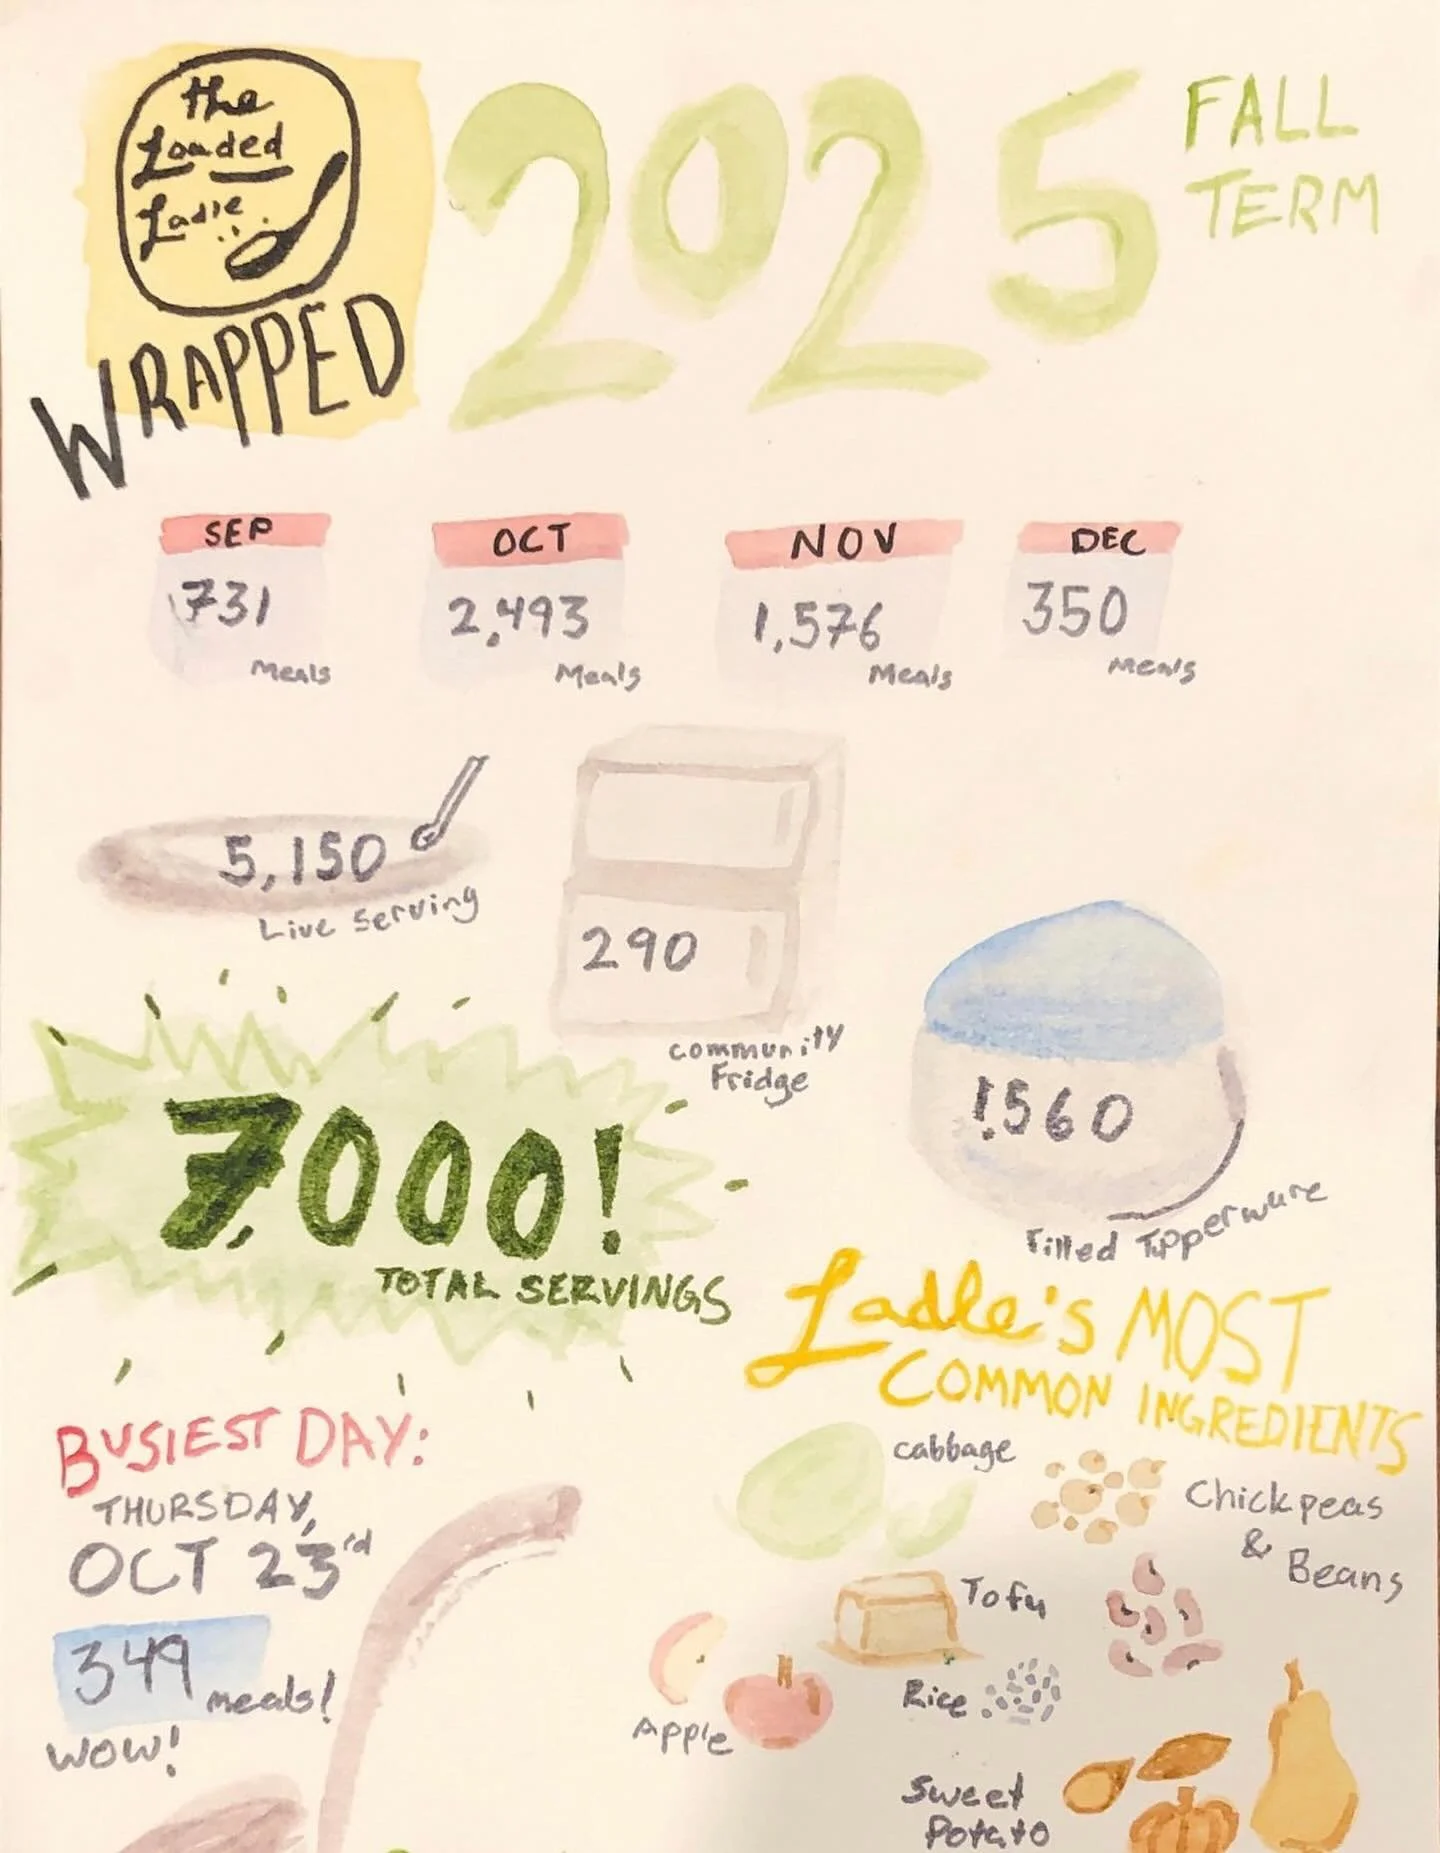 the
Loaded
Ladle
WRAPPED
2025
FALL
TERM
SEP
731
Meals
OCT
2,493
Meals
NOV
1,576
Meals
DEC
350
Meals
5,150
Live Serving
290
community
Fridge
1,560
Filled Tupperware
7,000!
TOTAL SERVINGS
BUSIEST DAY:
THURSDAY,
OCT 23rd
349
meals!
WOW!
Ladle's MOST
COMMON INGREDIENTS
cabbage
Chickpeas
&
Beans
Tofu
Apple
Rice
Sweet
Potato